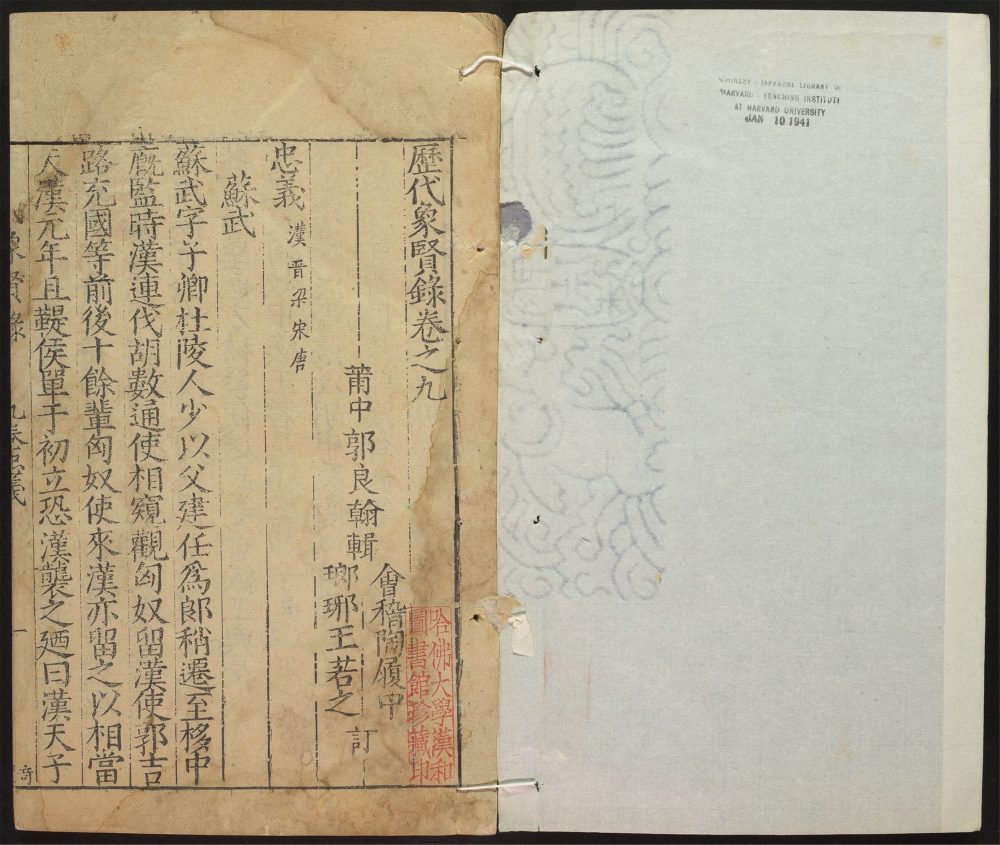 CHINESE - JAPANESE LIBRARY OF
HARVARD - YENCHING INSTITUTE
AT HARVARD UNIVERSITY
JAN 10 1941
歷代象賢錄卷之九
哈佛大學漢和
圖書館珍藏印
會稽陶履中
莆中郭良翰輯
瑯琊王若之
訂
忠義 漢晉梁宋唐
蘇武
蘇武字子卿杜陵人少以父建任為郎稍遷至栘中
廄監時漢連伐胡數通使相窺觀匈奴留漢使郭吉
路充國等前後十餘輩匈奴使來漢亦留之以相當
天漢元年且鞮侯單于初立恐漢襲之廼曰漢天子
象賢錄 九卷忠義 一